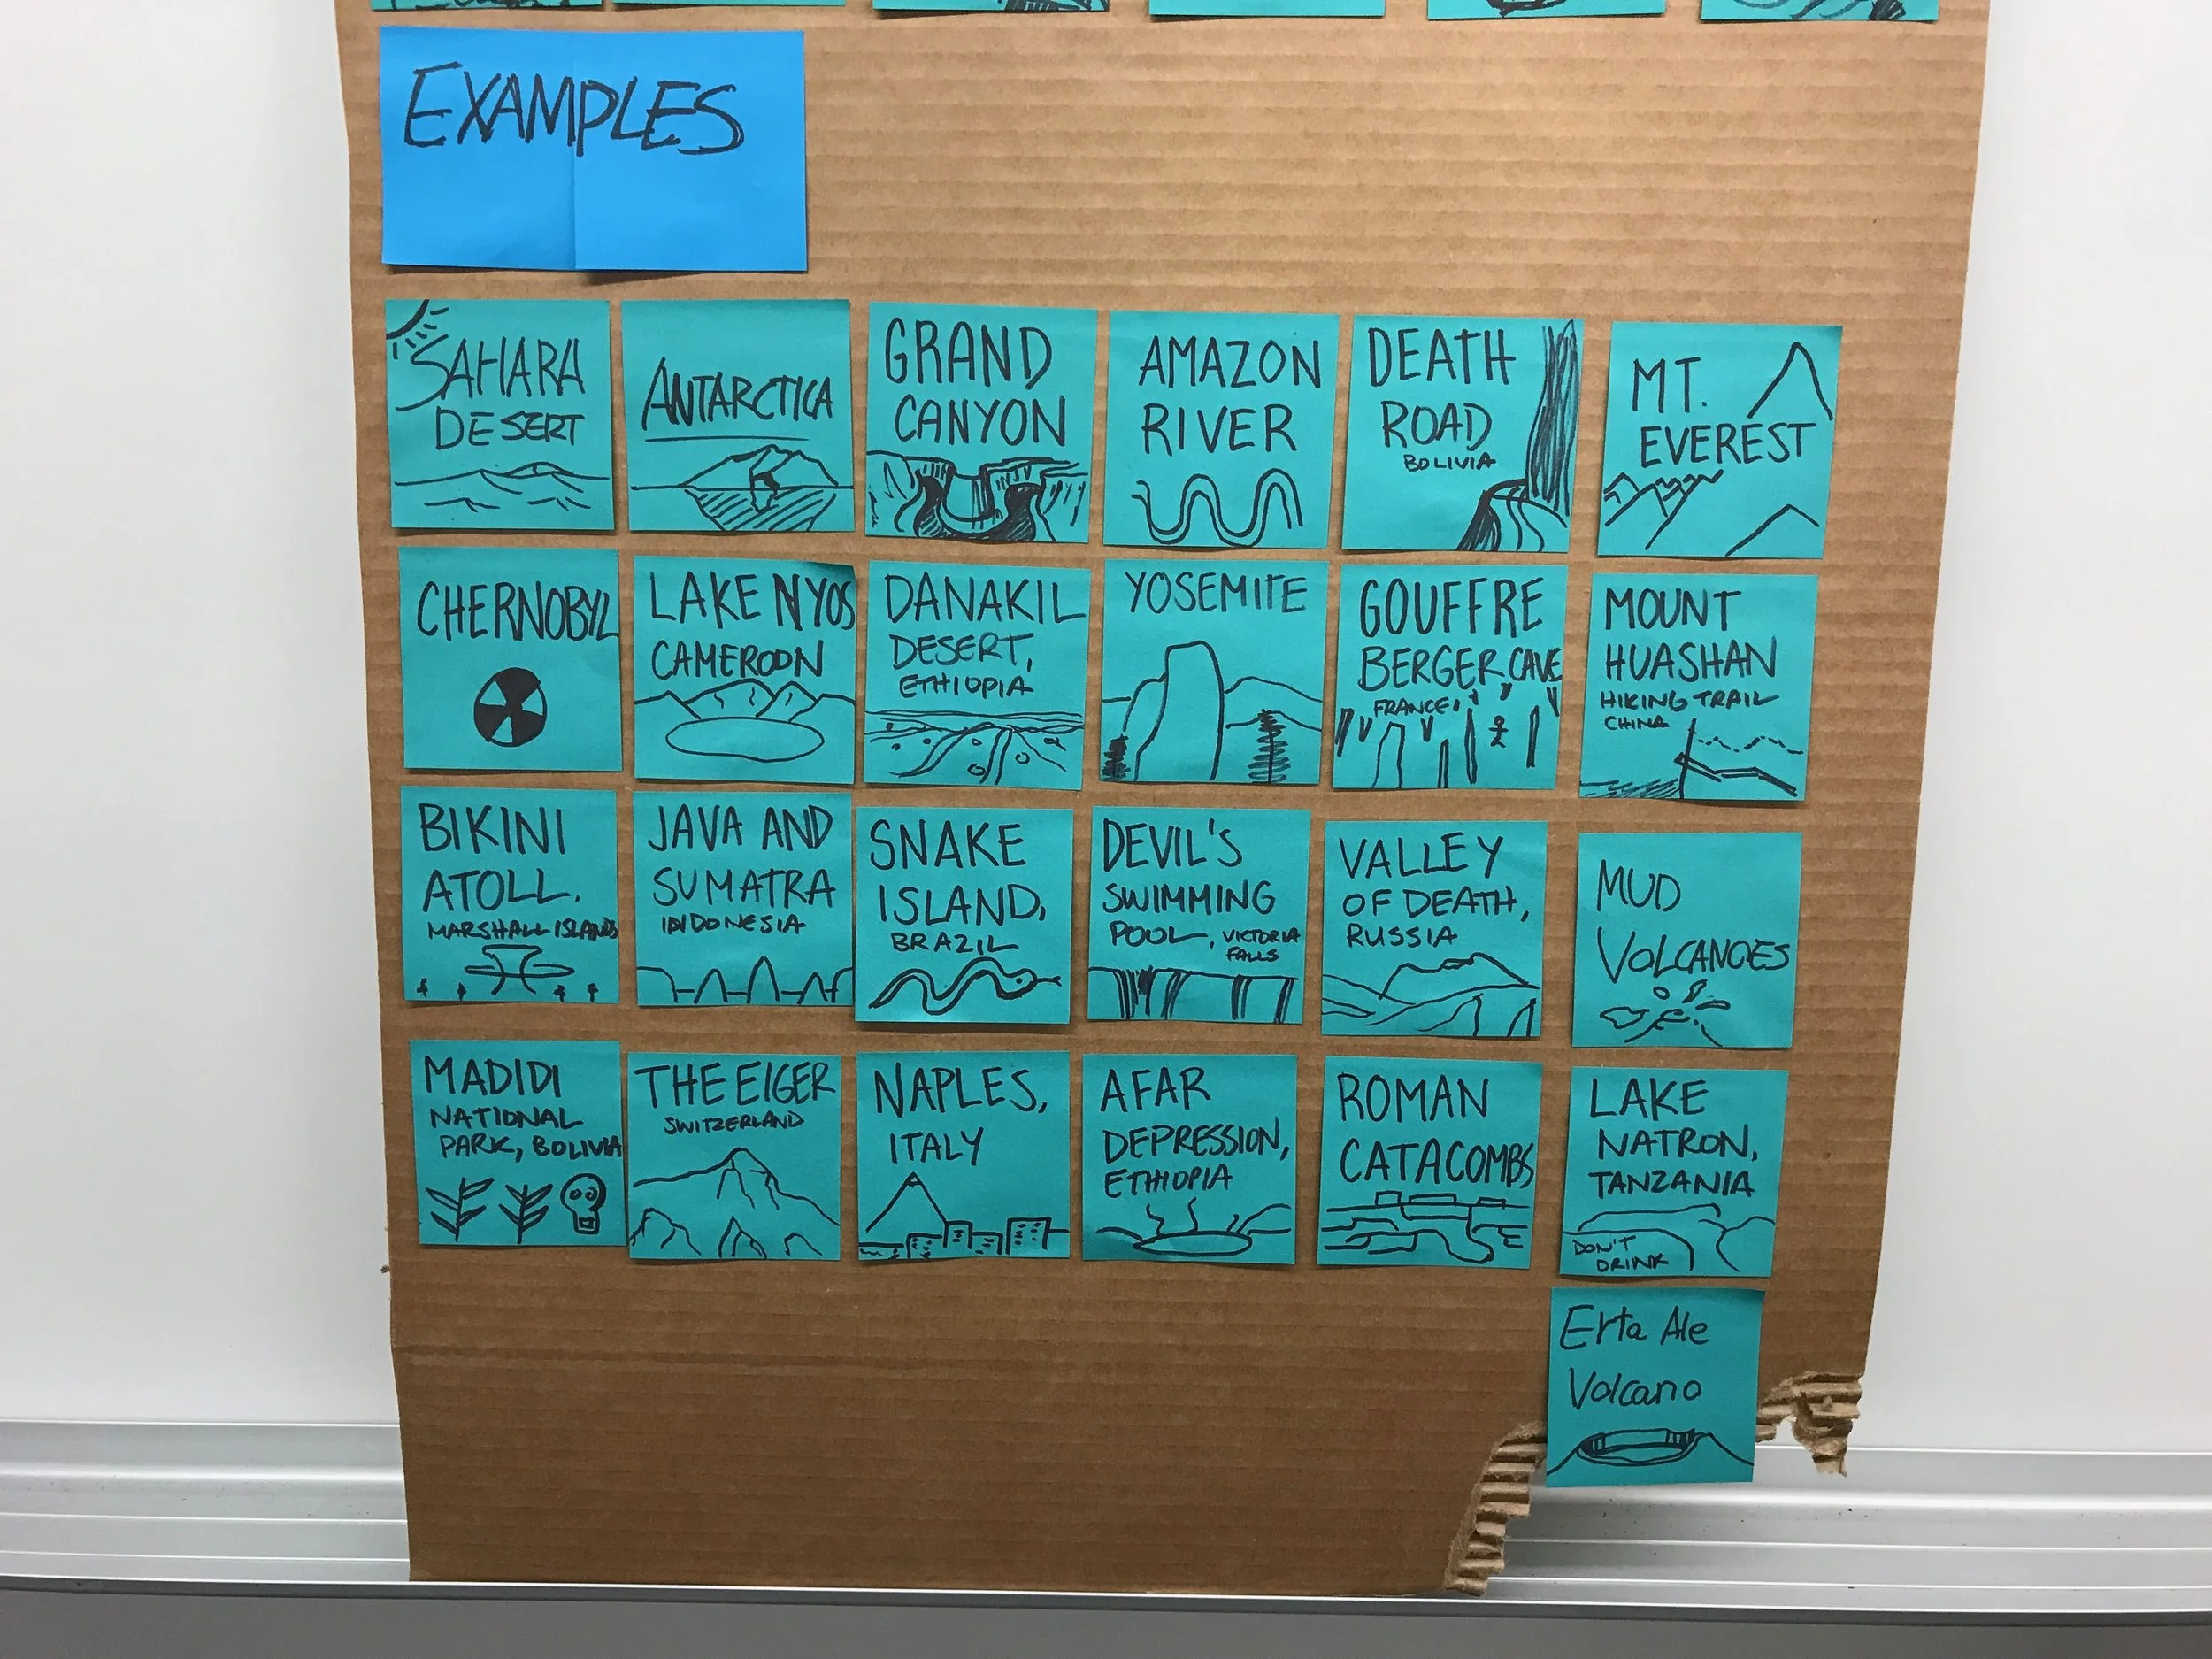 EXAMPLES
SAHARA
DESERT
ANTARCTICA
GRAND
CANYON
AMAZON
RIVER
DEATH
ROAD
BOLIVIA
MT.
EVEREST
CHERNOBYL
LAKE NYOS
CAMEROON
DANAKIL
DESERT,
ETHIOPIA
YOSEMITE
GOUFFRE
BERGER CAVE
FRANCE
MOUNT
HUASHAN
HIKING TRAIL
CHINA
BIKINI
ATOLL.
MARSHALL ISLANDS
JAVA AND
SUMATRA
INDONESIA
SNAKE
ISLAND,
BRAZIL
DEVIL'S
SWIMMING
POOL, VICTORIA
FALLS
VALLEY
OF DEATH,
RUSSIA
MUD
VOLCANOES
MADIDI
NATIONAL
PARK, BOLIVIA
THE EIGER
SWITZERLAND
NAPLES,
ITALY
AFAR
DEPRESSION,
ETHIOPIA
ROMAN
CATACOMBS
LAKE
NATRON,
TANZANIA
DON'T
DRINK
Erta Ale
Volcano